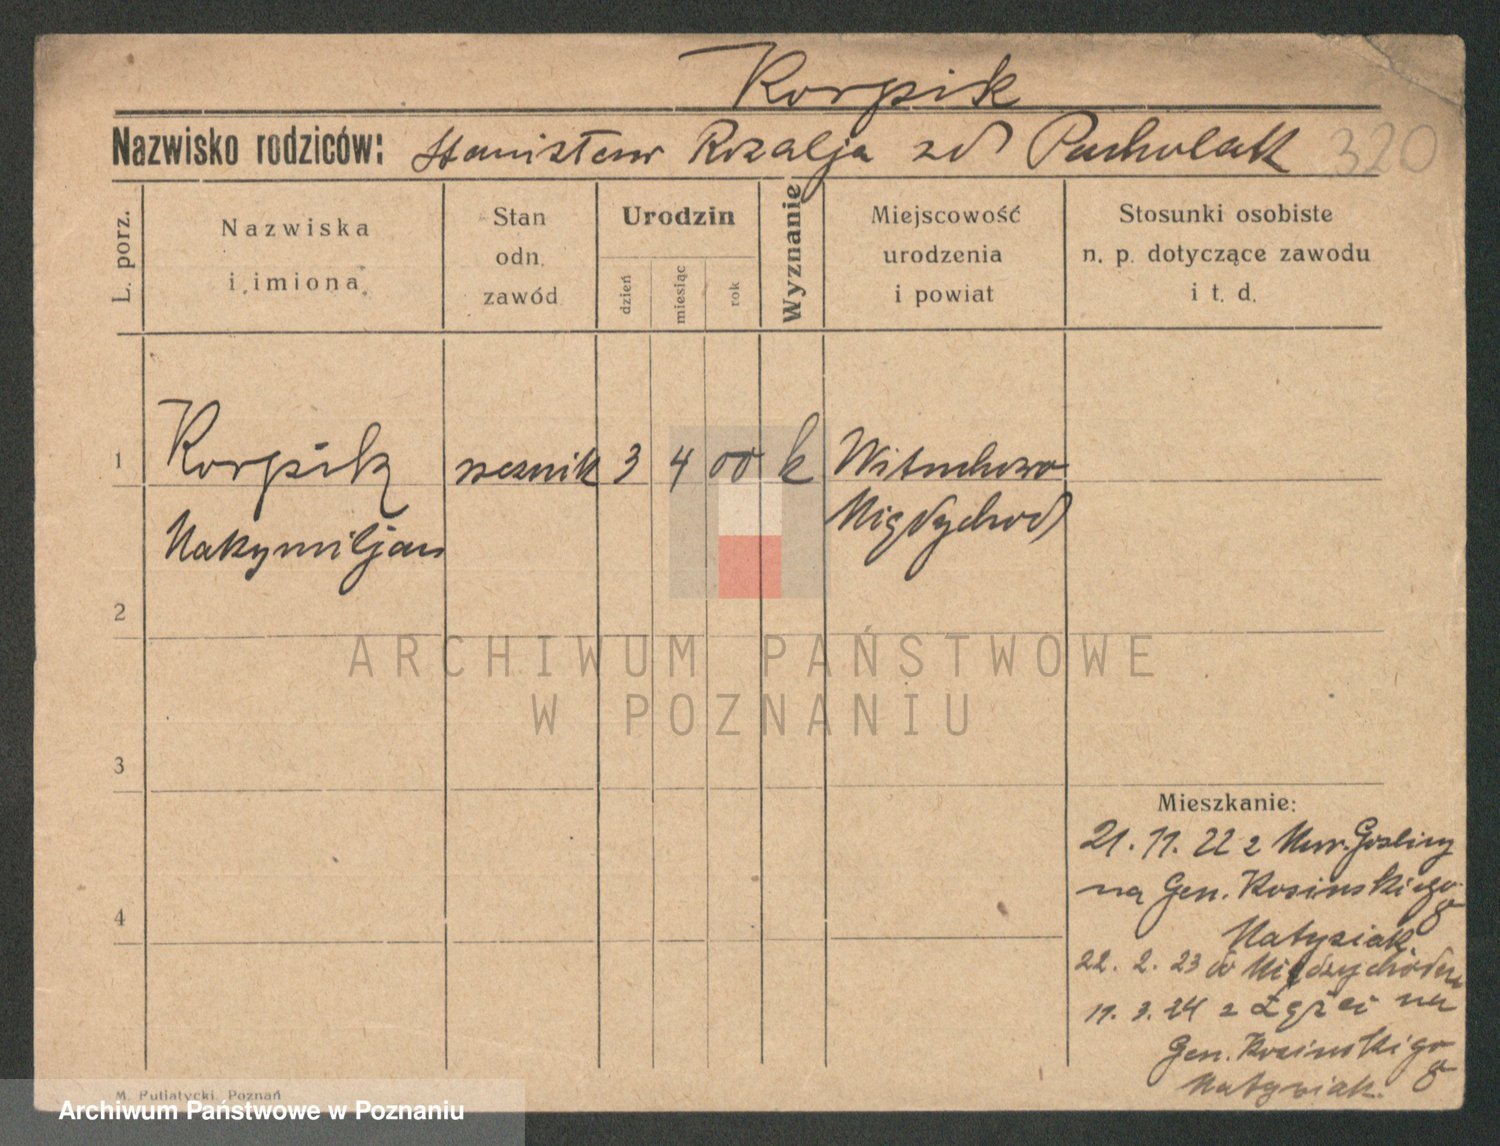 Korpik
Nazwisko rodziców: Stanisław Rozalja zd Pacholak 320
L. porz.
Nazwiska
i imiona
Stan
odn.
zawód
Urodzin
dzień
miesiąc
rok
Wyznanie
Miejscowość
urodzenia
i powiat
Stosunki osobiste
n. p. dotyczące zawodu
i t. d.
1 Korpik rzeznik 3 4 00 k Wituchowo
Maksymiljan Międzychod
2
ARCHIWUM PAŃSTWOWE
W POZNANIU
3
Mieszkanie:
21. 11. 22 z Mur. Gosliny
na Gen. Kosinskiego
4
Matysiak
22. 2. 23 do Międzychodu
11. 3. 24 z na
Gen. Kosinskiego
Matysiak.
M. Putiatycki, Poznań
Archiwum Państwowe w Poznaniu